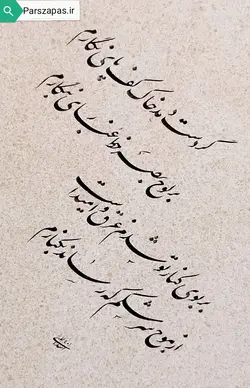 Parszapas.ir
گر دست دهد خاک کف پای نگارم
بر لوح بصر خط غباری بنگارم
بر بوی کنار تو شدم غرق و امیدست
از موج سرشکم که رساند به کنارم